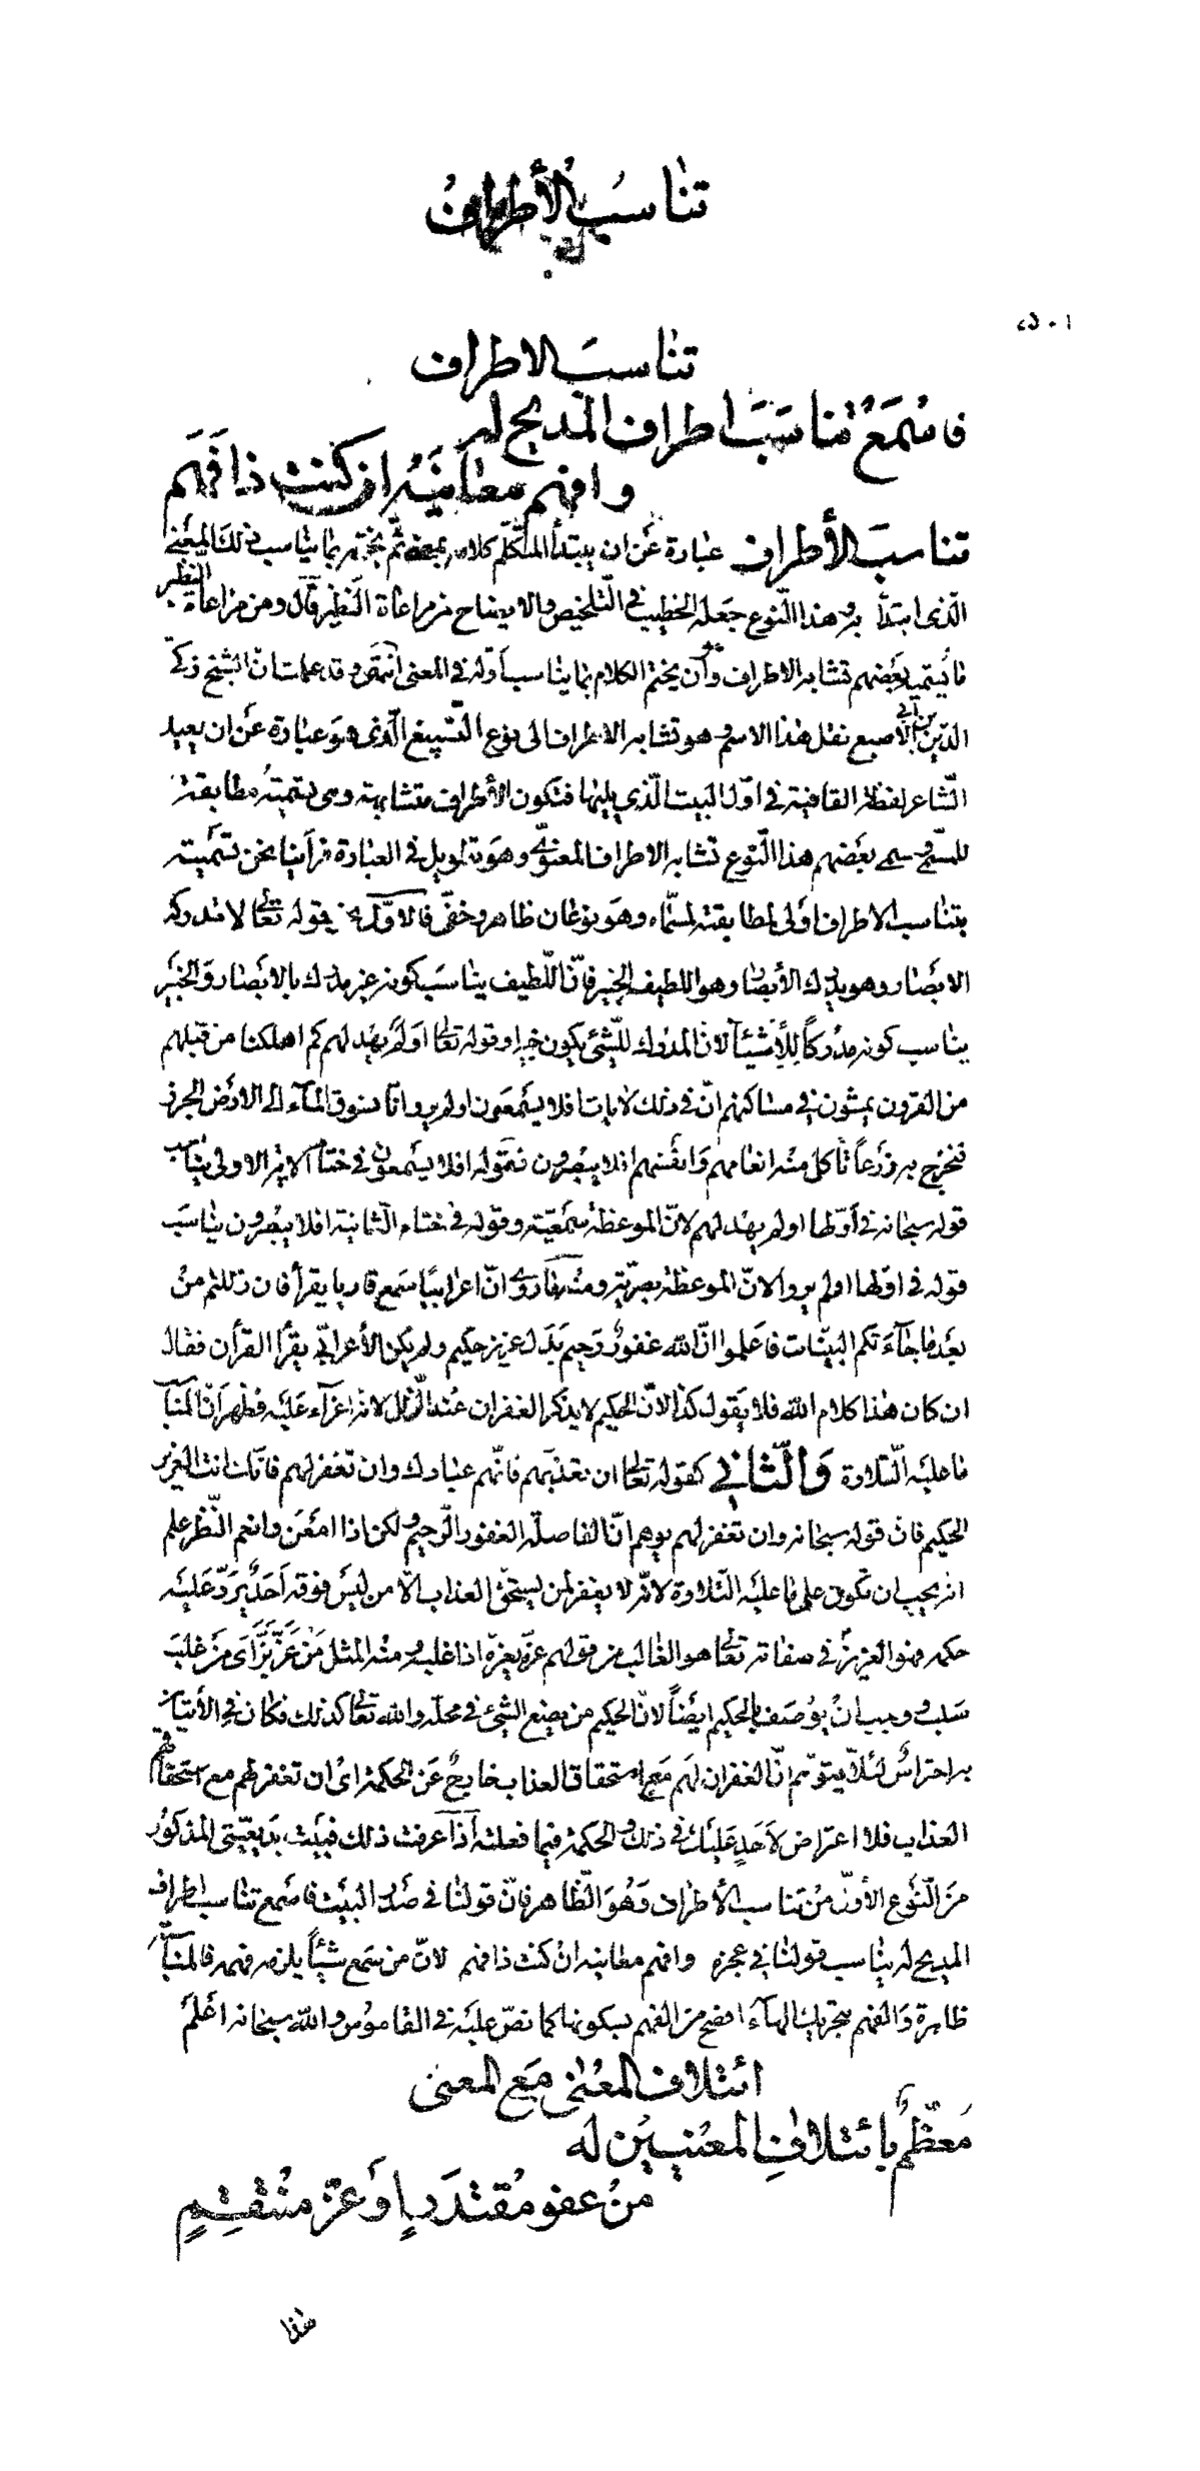 تناسب الأطراف
تناسب الاطراف
فاسمع تناسب اطراف المديح له
وافهم معانيه ان كنت ذا فهم
تناسب الأطراف عبارة عن ان يبتدأ المتكلم كلامه بمعنى ثم يختمه بما يناسب ذلك المعنى
الذى ابتدأ به وهذا النوع جعله الخطيب فى التلخيص والايضاح من مراعاة النظير قال ومن مراعاة النظير
ما يسميه بعضهم تشابه الاطراف وهو أن يختم الكلام بما يناسب أوله فى المعنى انتهى وقد علمت ان الشيخ زكى
الدين بن أبى الأصبع نقل هذا الاسم وهو تشابه الاطراف الى نوع التسبيغ الذى هو عبارة عن ان يعيد
الشاعر لفظة القافية فى اول البيت الذى يليها فتكون الأطراف متشابهة وهى تسمية مطابقة
للمسمى وسمى بعضهم هذا النوع تشابه الاطراف المعنوى وهو تطويل فى العبارة فرأينا نحن تسميته
بتناسب الاطراف اولى لمطابقته لمسماه وهو نوعان ظاهر وخفى فالاول نحو قوله تعالى لا تدركه
الابصار وهو يدرك الأبصار وهو اللطيف الخبير فان اللطيف يناسب كونه غير مدرك بالابصار والخبير
يناسب كونه مدركاً للأشيآء لان المدرك للشئ يكون خبيرا وقوله تعالى اولم يهد لهم كم اهلكنا من قبلهم
من القرون يمشون فى مساكنهم ان فى ذلك لايات افلا يسمعون اولم يروا انا نسوق المآء الى الارض الجرز
فنخرج به زرعاً تأكل منه انعامهم وانفسهم افلا يبصرون فقوله افلا يسمعون فى ختام الآية الاولى يناسب
قوله سبحانه فى أولها اولم يهد لهم لان الموعظة سمعية وقوله فى ختام الثانية افلا يبصرون يناسب
قوله فى اولها اولم يروا لان الموعظة بصرية ومنه ما روى ان اعرابيا سمع قاريا يقرأ فان زللتم من
بعد ما جآءتكم البينات فاعلموا ان الله غفور رحيم بدل عزيز حكيم ولم يكن الأعرابى يقرأ القرآن فقال
ان كان هذا كلام الله فلا يقول كذا لان الحكيم لا يذكر الغفران عند الزلل لانه اغرآء عليه فظهر ان المناسب
ما عليه التلاوة والثانى كقوله تعالى ان تعذبهم فانهم عبادك وان تغفر لهم فانك انت العزيز
الحكيم فان قوله سبحانه وان تغفر لهم يوهم ان الفاصلة الغفور الرحيم ولكن اذا امعن وانعم النظر علم
انه يجب ان تكون على ما عليه التلاوة لانه لا يغفر لمن يستحق العذاب الا من ليس فوقه احد يرد عليه
حكمه فهو العزيز فى صفاته تعالى هو الغالب من قولهم عزه يعزه اذا غلبه ومنه المثل من عز بز أى من غلب
سلب ووجب ان يوصف بالحكيم ايضاً لان الحكيم من يضع الشئ فى محله والله تعالى كذلك فكان فى الأتيان
به احتراس لئلا يتوهم ان الغفران لهم مع استحقاق العذاب خارج عن الحكمة اى ان تغفر لهم مع استحقاقهم
العذاب فلا اعتراض لأحد عليك فى ذلك والحكمة فيما فعلته اذا عرفت ذلك فبيت بديعيتى المذكور
من النوع الأول من تناسب الأطراف وهو الظاهر فان قولنا فى صدر البيت فاسمع تناسب اطراف
المديح له يناسب قولنا فى عجزه وافهم معانيه ان كنت ذا فهم لان من سمع شيئاً يلزمه فهمه فالمناسبة
ظاهرة والفهم بتحريك الهآء افصح من الفهم بسكونها كما نص عليه فى القاموس والله سبحانه اعلم
ائتلاف المعنى مع المعنى
معظم بائتلاف المعنيين له
من عفو مقتدر او عز منتقم
هذا